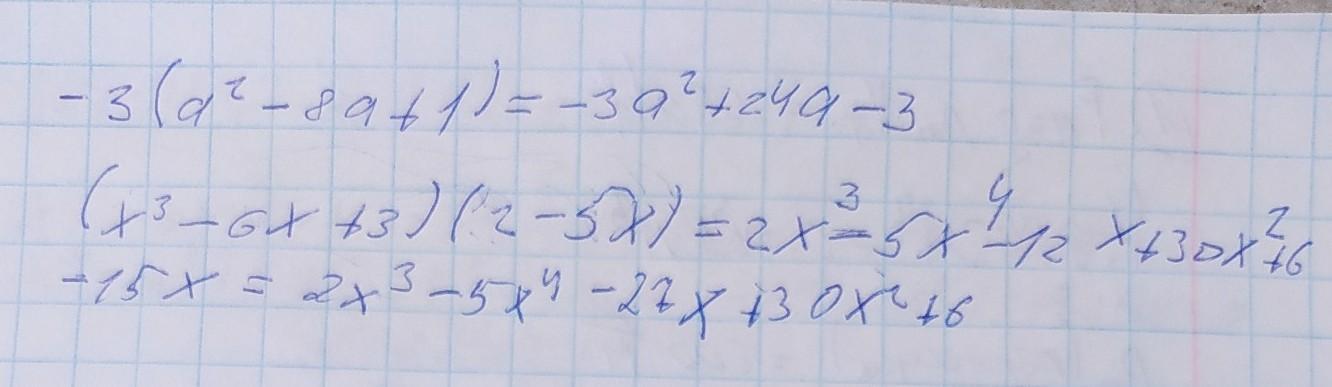 -3(a² - 8a + 1) = -3a² + 24a - 3
(x³ - 6x + 3)(2 - 5x) = 2x³ - 5x⁴ - 12x + 30x² + 6
- 15x = 2x³ - 5x⁴ - 27x + 30x² + 6